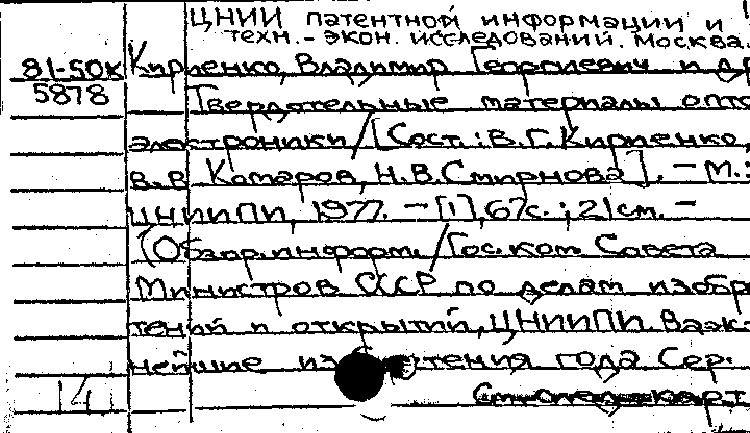 ЦНИИ патентной информации и
техн.-экон. исследований. Москва.
81-50к Кириенко, Владимир Георгиевич и др
5878 Твердотельные материалы опто
электроники/[Сост.: В.Г.Кириенко,
В.В Комаров, Н.В.Смирнова]. - М.:
ЦНИИПИ, 1977. - [1], 67с.; 21см. -
(Обзор.информ./Гос.ком Совета
Министров СССР по делам изобр
тений и открытий, ЦНИИПИ. Важ
нейшие изобретения года Сер.
141